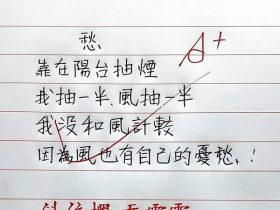 愁
A+
靠在陽台抽煙
我抽一半、風抽一半
我没和風計較
因為風也有自己的憂愁、!